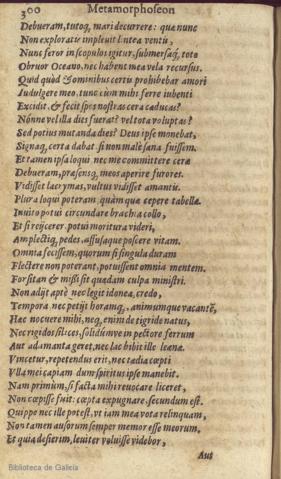 300 Metamorphoseon
Debueram, tutoq, mari decurrere: quæ nunc
Non exploratis impleuit lintea ventis,
Nunc feror in scopulos igitur, submersaq́, toto
Obruor Oceano, nec habent mea vela recursus.
Quid quòd & ominibus certis prohibebar amori
Indulgere meo, tunc cùm mihi ferre iubenti
Excidit, & fecit spes nostras cera caducas?
Nónne vel illa dies fuerat? vel tota voluptas?
Sed potius mutanda dies? Deus ipse monebat,
Signaq́, certa dabat. si non malè sana fuissem.
Et tamen ipsa loqui nec me committere ceræ
Debueram, præsensq́, meos aperire furores.
Vidisset lacrymas, vultus vidisset amantis.
Plura loqui poteram, quàm quæ cepere tabellæ.
Inuito potui circundare brachia collo,
Et si reijcerer. potui moritura videri,
Amplectiq́, pedes, affusaque poscere vitam.
Omnia fecissem, quorum si singula duram
Flectere non poterant, potuissent omnia mentem.
Forsitan & missi sit quædam culpa ministri.
Non adijt aptè nec legit idonea, credo,
Tempora nec petijt horamq́,, animumque vacantē,
Hæc nocuere mihi, neq, enim de tigride natus,
Nec rigidos silices, solidúmve in pectore ferrum
Aut adamanta geret, nec lac bibit ille leænæ.
Vincetur, repetendus erit, nec tædia cœpti
Vlla mei capiam dum spiritus ipse manebit.
Nam primùm, si facta mihi reuocare liceret,
Non cœpisse fuit: cœpta expugnare, secundum est.
Quippe nec ille potest, vt iam mea vota relinquam,
Non tamen ausorum semper memor esse meorum,
Et quia desierim, leuiter voluisse videbor,
Aut
Biblioteca de Galicia